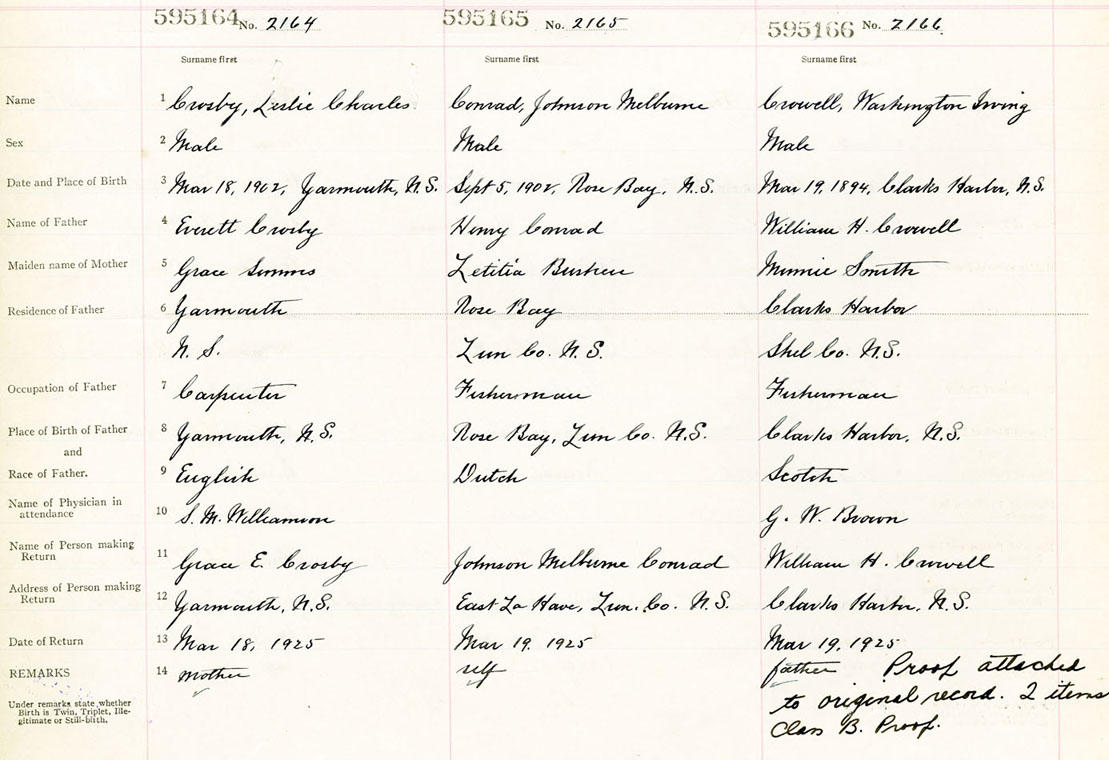 595164 No. 2164 595165 No. 2165 595166 No. 2166
Surname first Surname first Surname first
Name 1 Crosby, Leslie Charles Conrad, Johnson Melburne Crowell, Washington Irving
Sex 2 Male Male Male
Date and Place of Birth 3 Mar 18, 1902, Yarmouth, N.S. Sept 5, 1902, Rose Bay, N.S. Mar 19, 1894, Clarks Harbor, N.S.
Name of Father 4 Everett Crosby Henry Conrad William H. Crowell
Maiden name of Mother 5 Grace Letitia Minnie Smith
Residence of Father 6 Yarmouth Rose Bay Clarks Harbor
N. S. Lun Co. N. S. Shel Co. N.S.
Occupation of Father 7 Carpenter Fisherman Fisherman
Place of Birth of Father 8 Yarmouth, N.S. Rose Bay, Lun Co. N.S. Clarks Harbor, N.S.
and
Race of Father. 9 English Dutch Scotch
Name of Physician in
attendance 10 S. M. Williamson G. W. Brown
Name of Person making
Return 11 Grace E. Crosby Johnson Melburne Conrad William H. Crowell
Address of Person making
Return 12 Yarmouth, N.S. East La Have, Lun. Co. N.S. Clarks Harbor, N.S.
Date of Return 13 Mar 18, 1925 Mar 19, 1925 Mar 19, 1925
REMARKS 14 mother self father Proof attached
to original record. 2 items
Class B. Proof.
Under remarks state whether
Birth is Twin, Triplet, Ille-
gitimate or Still-birth.